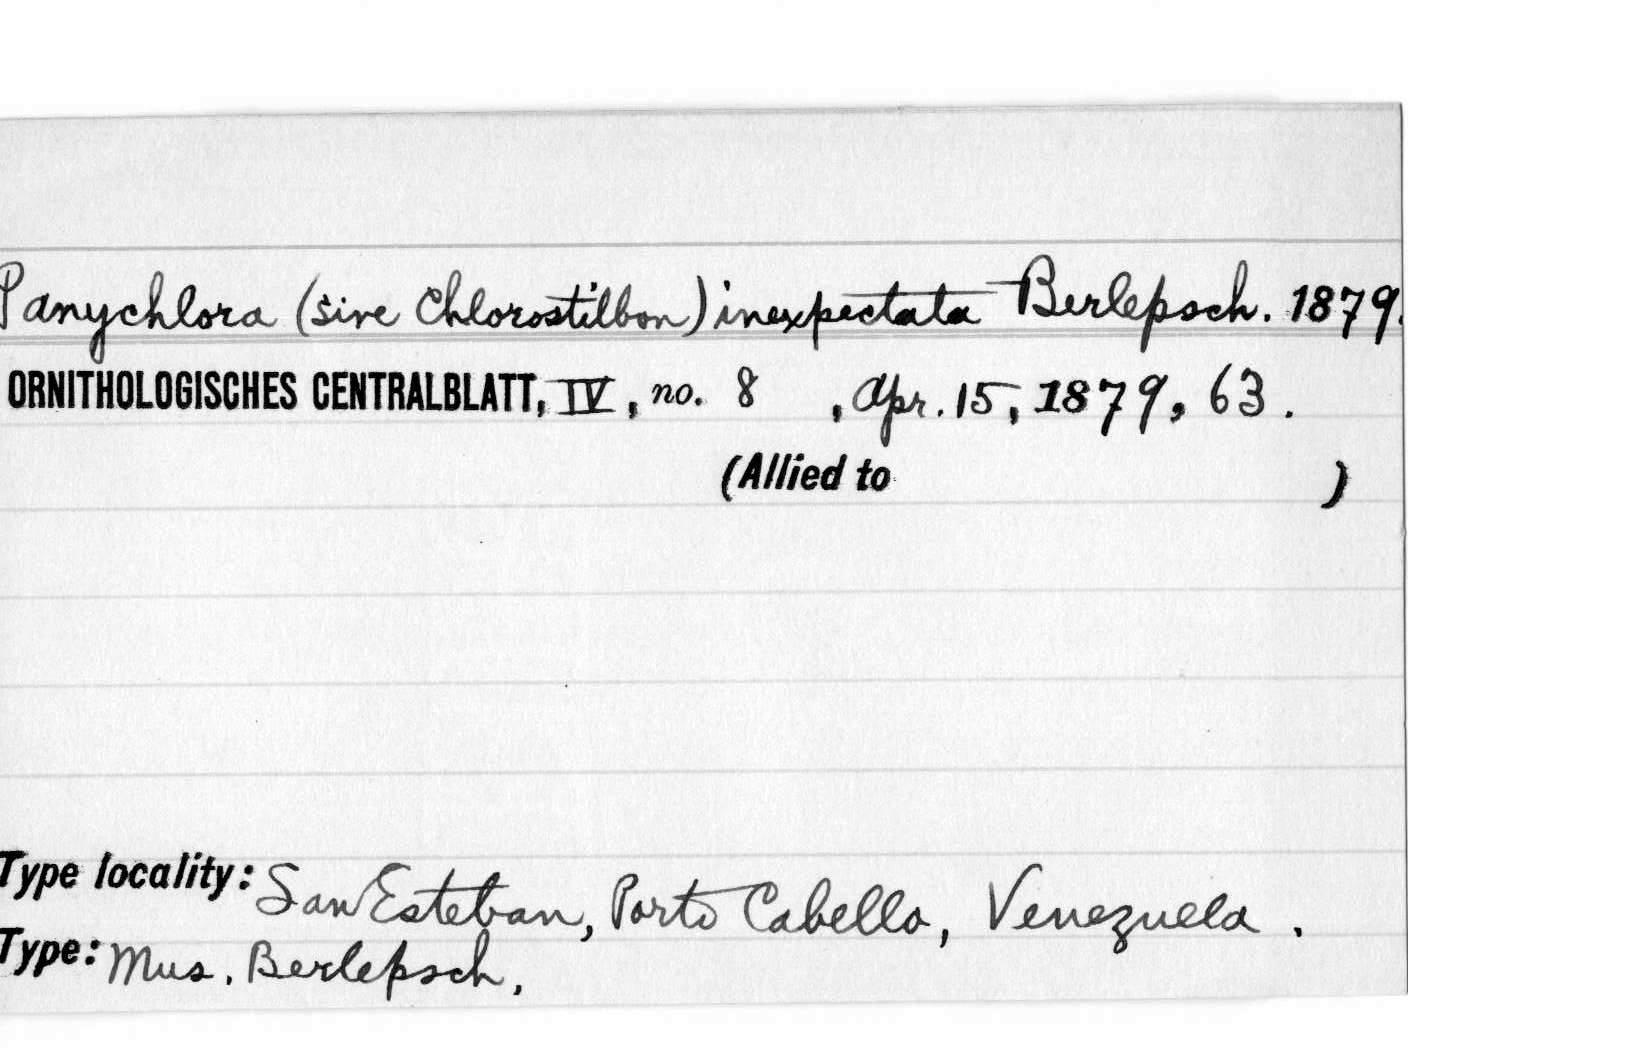 Panychlora (sive Chlorostilbon) inexpectata Berlepsch. 1879.
ORNITHOLOGISCHES CENTRALBLATT, IV, no. 8 , Apr. 15, 1879, 63.
(Allied to )
Type locality: San Esteban, Porto Cabello, Venezuela.
Type: Mus. Berlepsch.